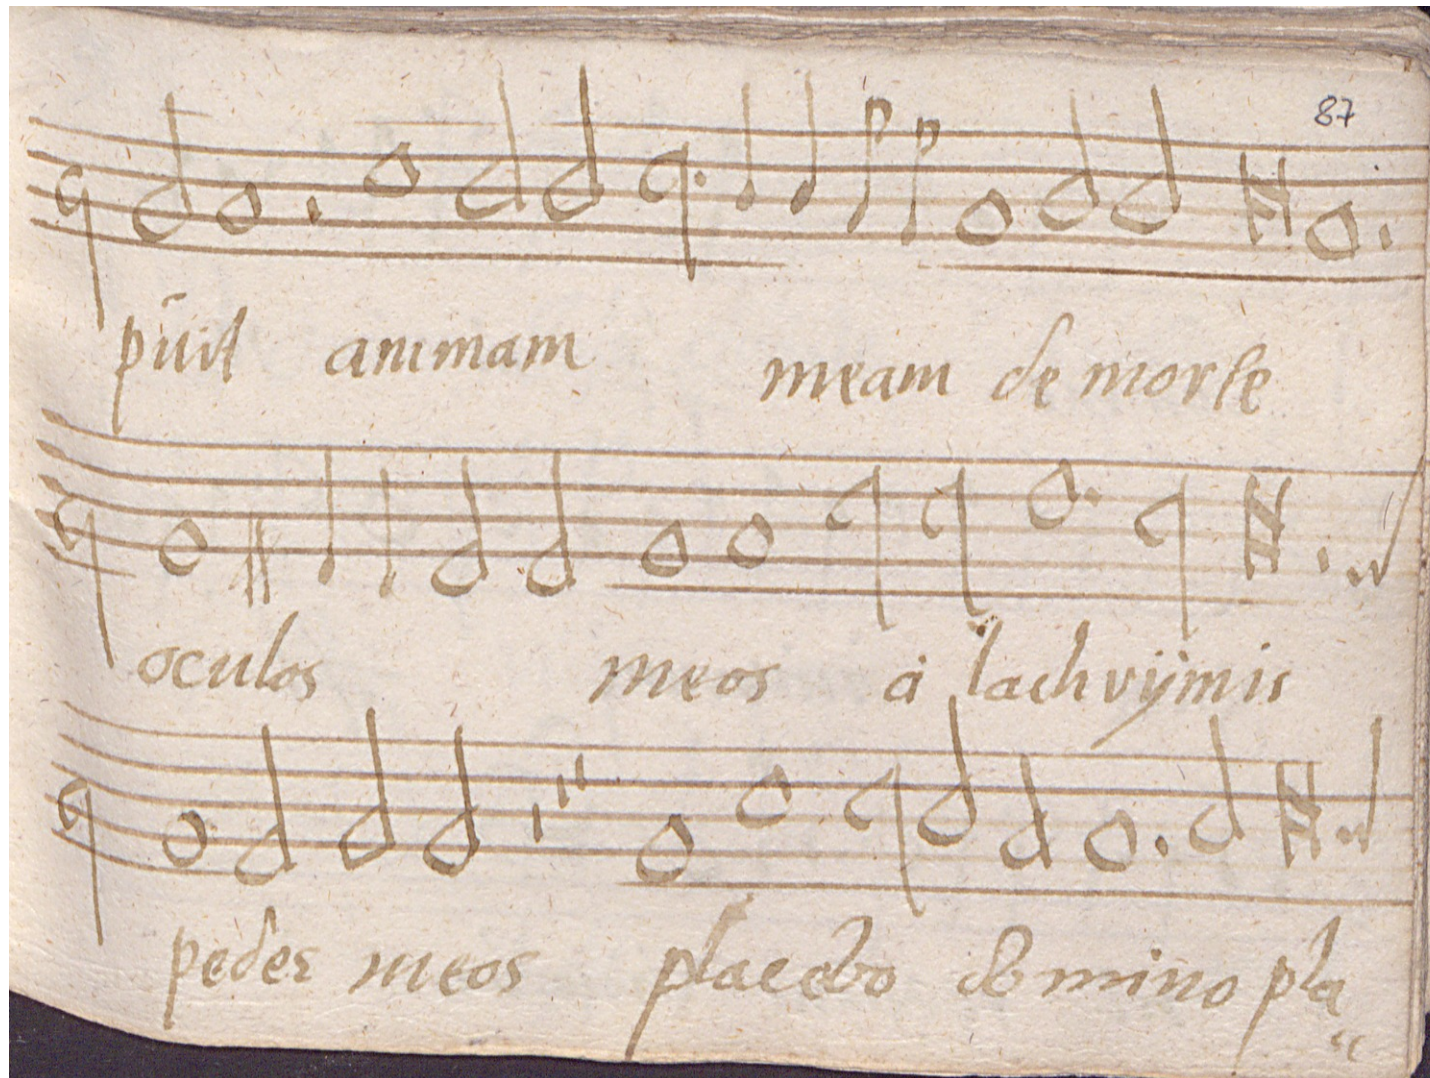 87
pūit animam meam de morte
oculos meos à lachrÿmis
pedes meos placebo domino pla